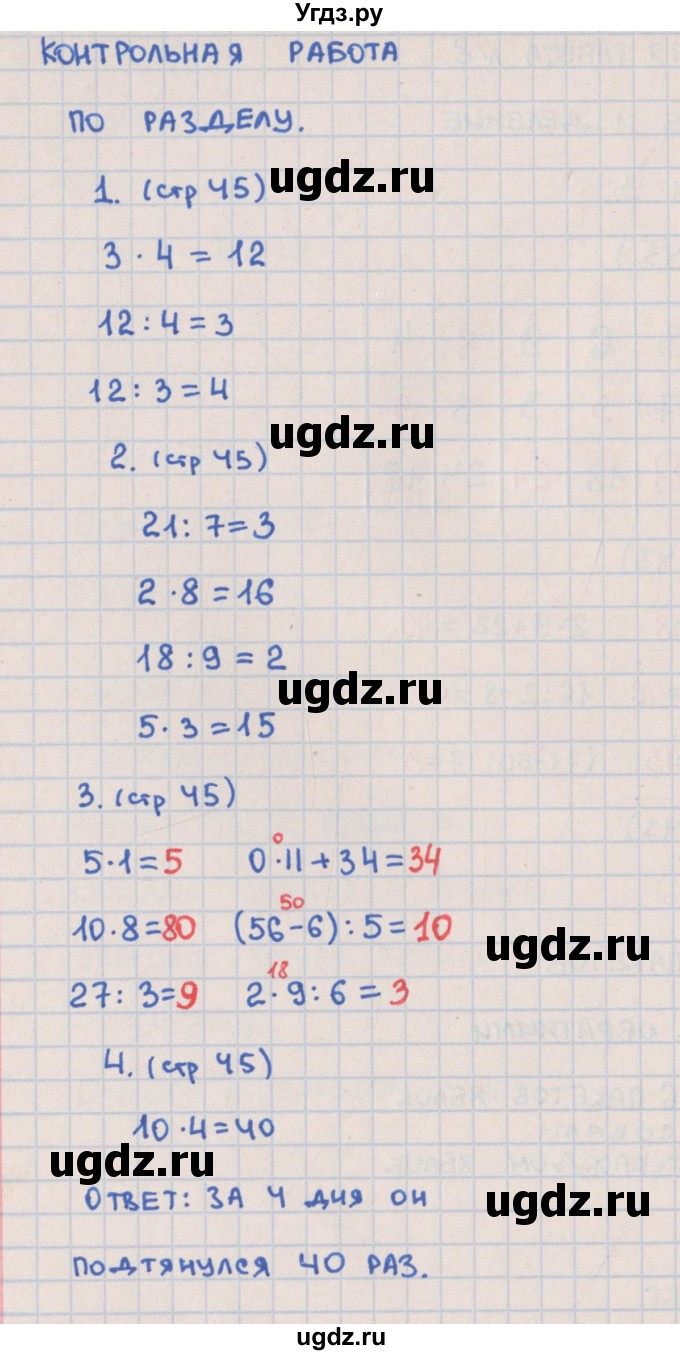 Угдз.ру
КОНТРОЛЬНАЯ РАБОТА
ПО РАЗДЕЛУ.
ugdz.ru
1. (стр 45)
3 · 4 = 12
12 : 4 = 3
12 : 3 = 4
ugdz.ru
2. (стр 45)
21 : 7 = 3
2 · 8 = 16
18 : 9 = 2
ugdz.ru
5 · 3 = 15
3. (стр 45)
0
5 · 1 = 5 0 · 11 + 34 = 34
50
10 · 8 = 80 (56 - 6) : 5 = 10
ugdz.ru
18
27 : 3 = 9 2 · 9 : 6 = 3
4. (стр 45)
10 · 4 = 40
ugdz.ru
ОТВЕТ: ЗА 4 ДНЯ ОН
ugdz.ru
ПОДТЯНУЛСЯ 40 РАЗ.
ugdz.ru